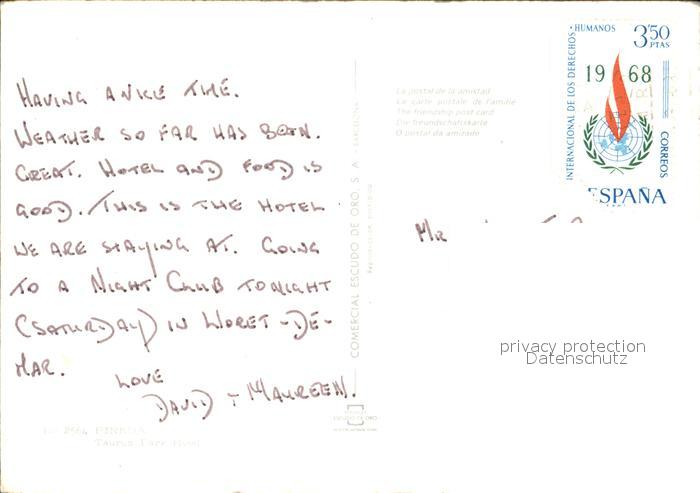 HAVING A NICE TIME.
WEATHER SO FAR HAS BEEN.
GREAT. HOTEL AND FOOD IS
GOOD. THIS IS THE HOTEL
WE ARE STAYING AT. GOING
TO A NIGHT CLUB TONIGHT
(SATURDAY) IN LLORET-DE-
MAR.
LOVE
DAVID + MAUREEN.
2564 PINEDA
Taurus Park Hotel
COMERCIAL ESCUDO DE ORO, S. A.
ESCUDO DE ORO
La postal de la amistad
La carte postale de l'amitié
The friendship post card
Die freundschaftskarte
O postal da amizade
INTERNACIONAL DE LOS DERECHOS · HUMANOS
3'50
PTAS
1968
CORREOS
ESPAÑA
MR
privacy protection
Datenschutz